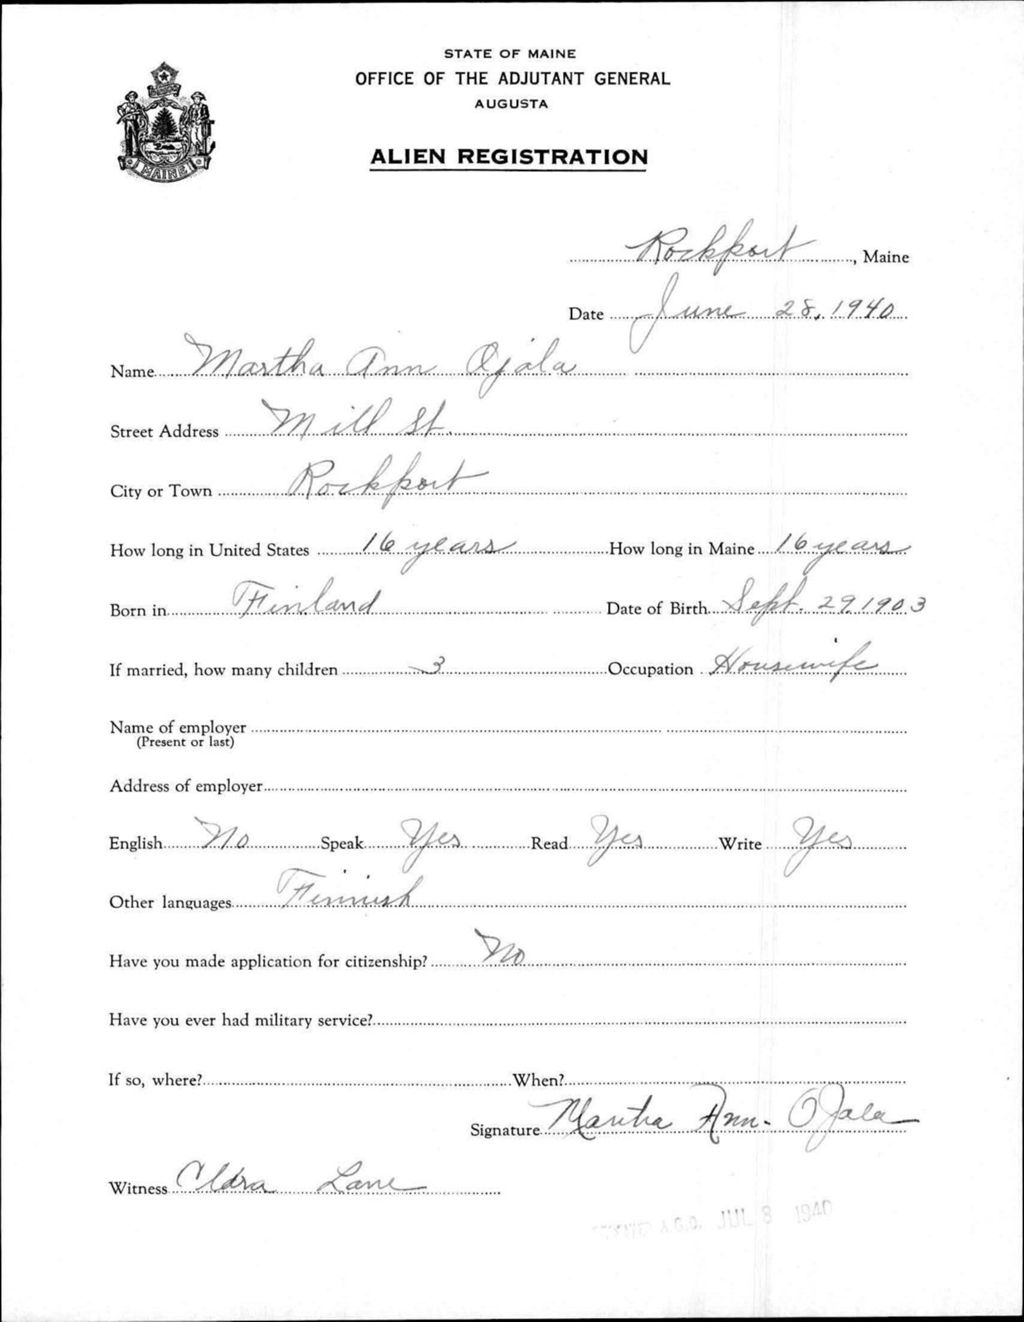 STATE OF MAINE
OFFICE OF THE ADJUTANT GENERAL
AUGUSTA
ALIEN REGISTRATION
MAINE
Rockport, Maine
Date June 28, 1940
Name Martha Ann Ojala
Street Address Mill St.
City or Town Rockport
How long in United States 16 years How long in Maine 16 years
Born in Finland Date of Birth Sept. 29 1903
If married, how many children 3 Occupation Housewife
Name of employer
(Present or last)
Address of employer
English No Speak Yes Read Yes Write Yes
Other languages Finnish
Have you made application for citizenship? No
Have you ever had military service?
If so, where? When?
Signature Martha Ann. OJala
Witness Lane
A.G.O. JUL 3 1940